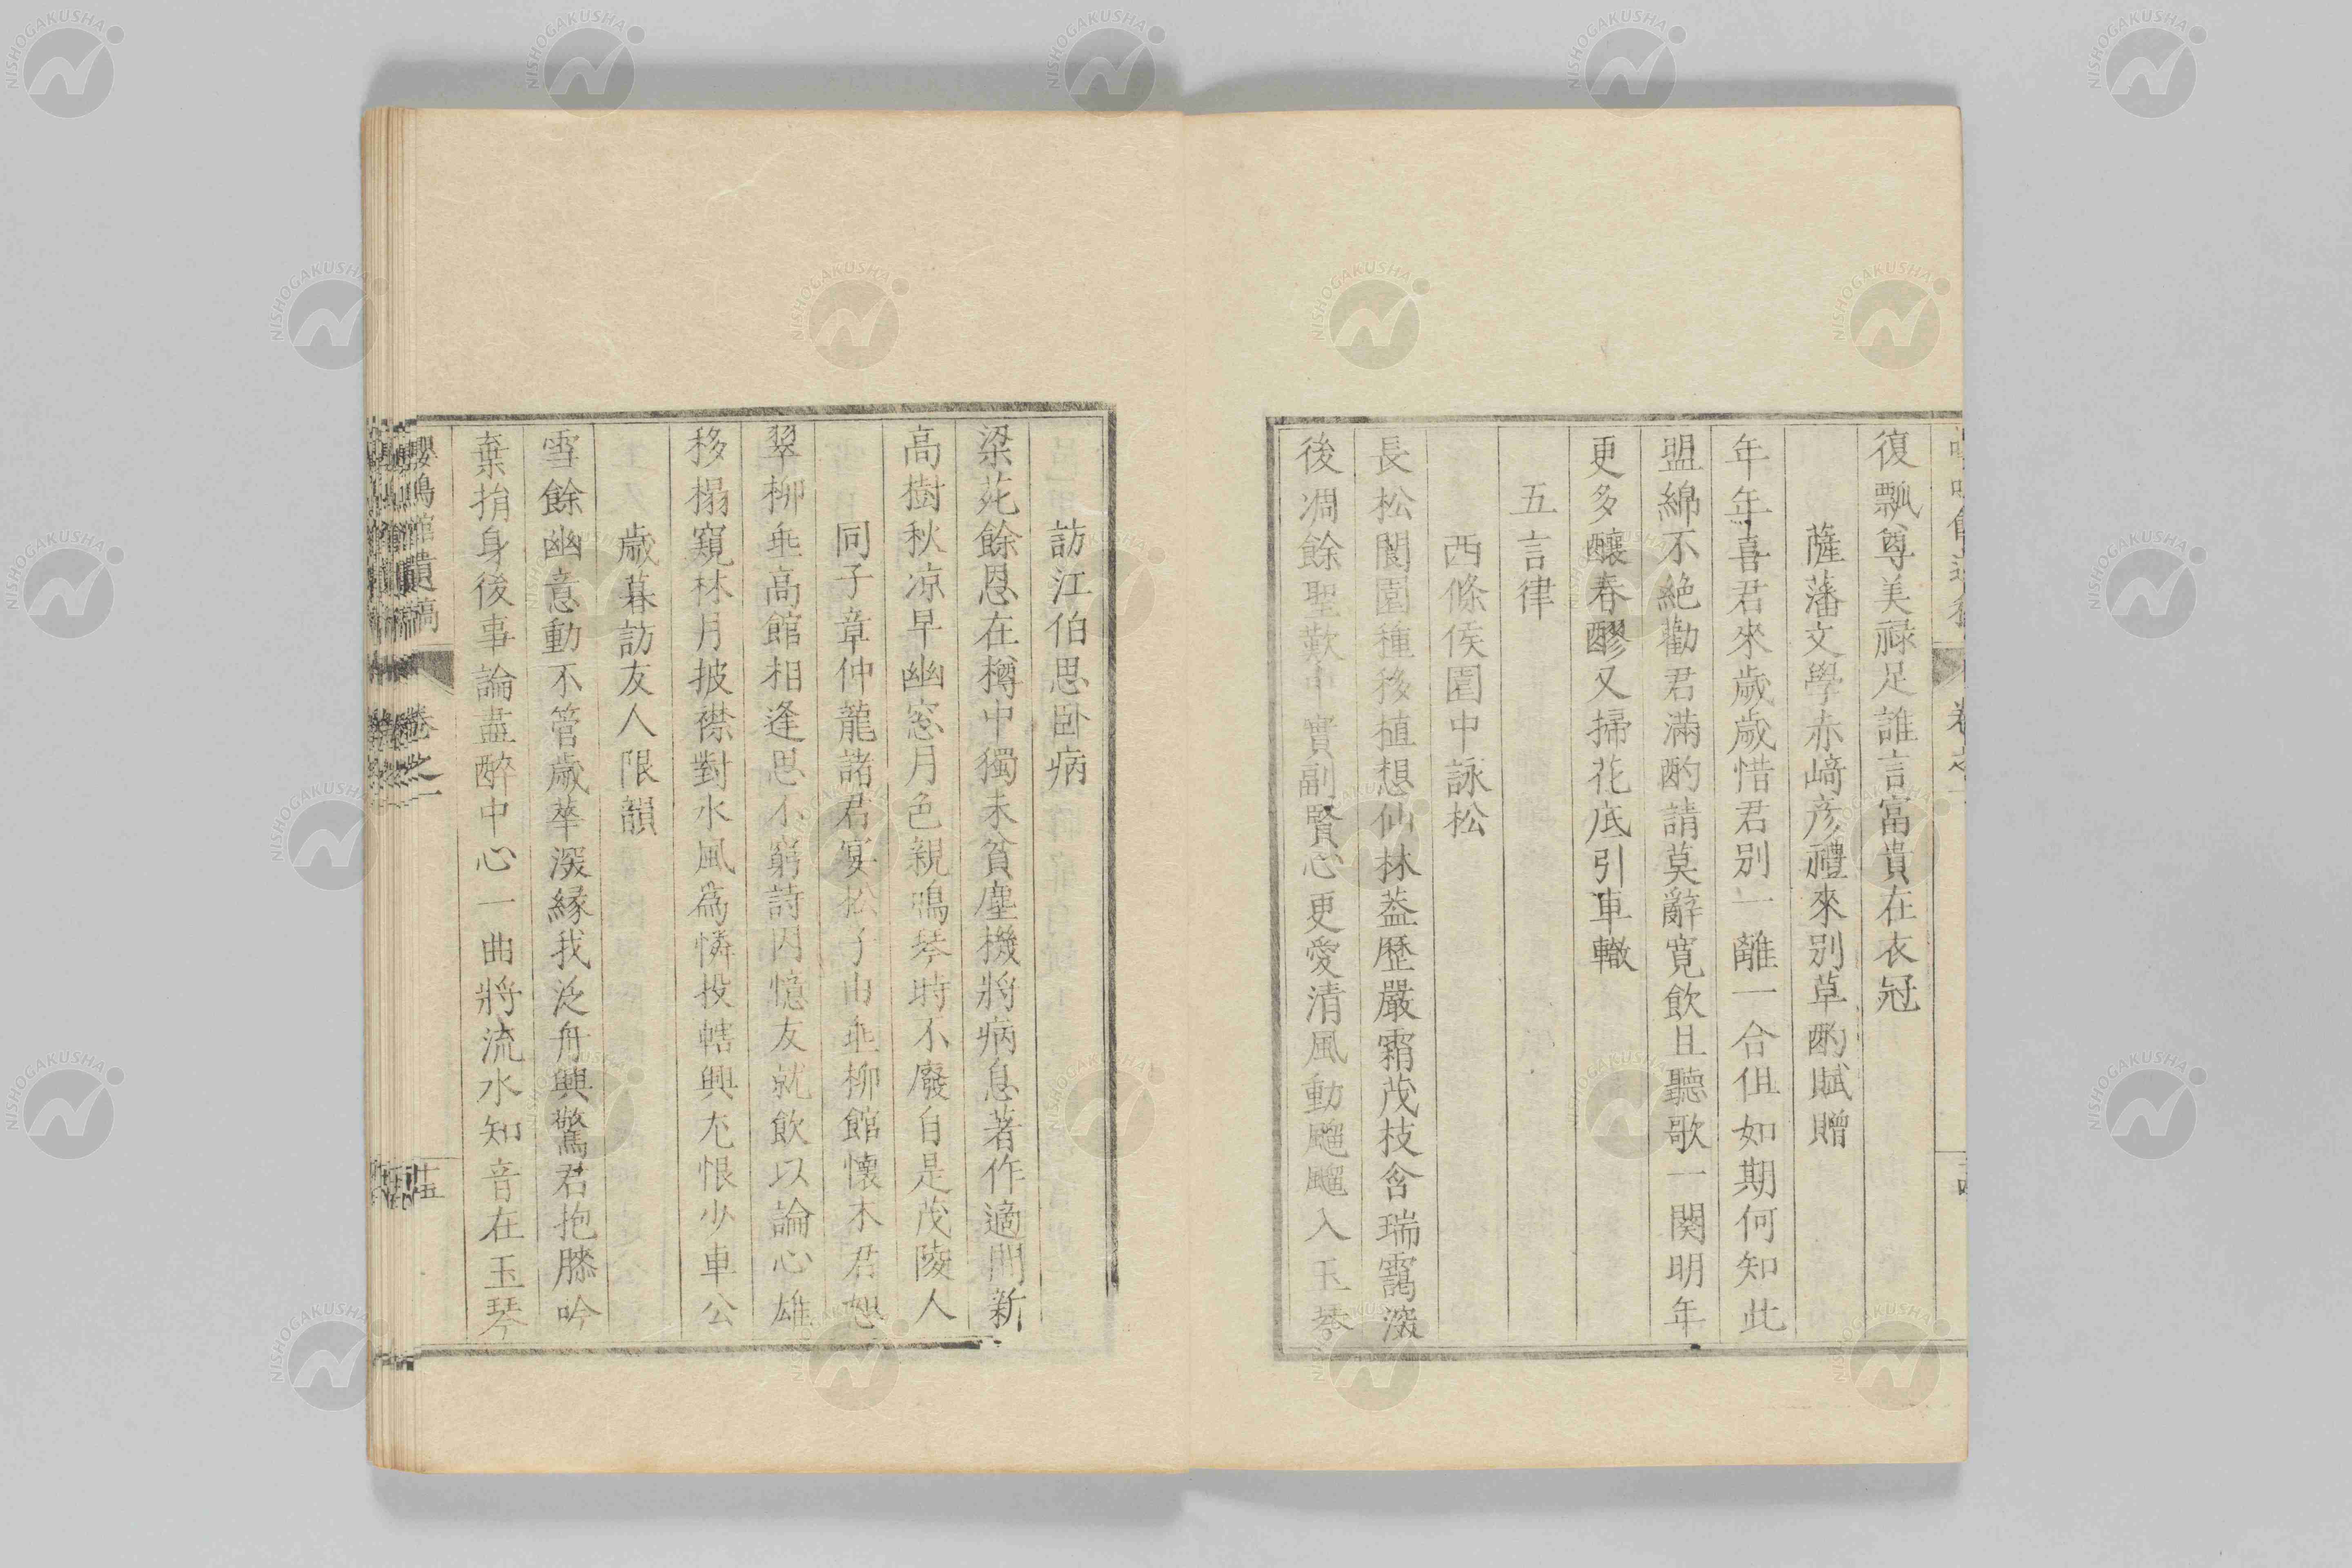 復飄尊美祿足誰言富貴在衣冠
薩藩文學赤﨑彦禮來別草酌賦贈
年年喜君來歲歲惜君別一離一合但如期何知此
盟綿不絶勸君滿酌請莫辭寛飲且聽歌一闋明年
更多釀春醪又掃花底引車轍
五言律
西條侯園中詠松
長松閬園種移植想仙林葢歷嚴霜茂枝含瑞靄深
後凋餘聖歎中實副賢心更愛清風動飀飀入玉琴
訪江伯思卧病
梁苑餘恩在樽中獨未貧塵機將病息著作適閒新
高樹秋凉早幽窓月色親鳴琴時不廢自是茂陵人
同子章仲龍諸君宴松子由垂柳館懷木君恕
翠柳垂高館相逢思不窮詩因憶友就飲以論心雄
移榻窺林月披襟對水風為憐投轄興尢恨少車公
歲暮訪友人限韻
雪餘幽意動不管歲華深緣我泛舟興驚君抱膝吟
棄捐身後事論盡醉中心一曲將流水知音在玉琴
嚶鳴館遺稿 卷之一 十五